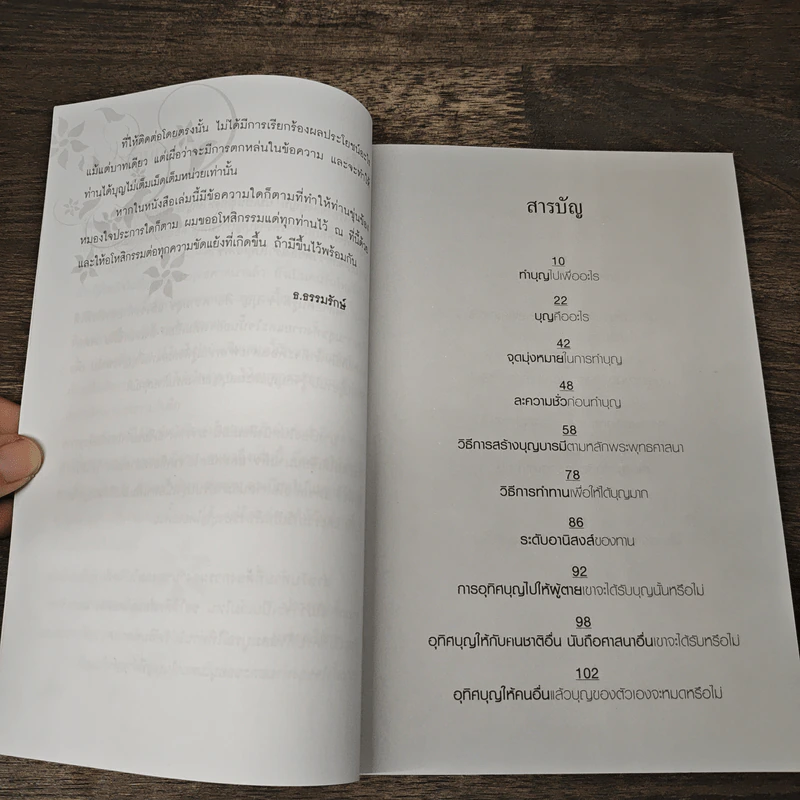 ที่ให้ติดต่อโดยตรงนั้น ไม่ได้มีการเรียกร้องผลประโยชน์
แม้แต่บาทเดียว แต่เผื่อว่าจะมีการตกหล่นในข้อความ และจะทำให้
ท่านได้บุญไม่เต็มเม็ดเต็มหน่วยเท่านั้น
หากในหนังสือเล่มนี้มีข้อความใดก็ตามที่ทำให้ท่าน
หมองใจประการใดก็ตาม ผมขออโหสิกรรมแด่ทุกท่านไว้ ณ ที่นี้ด้วย
และให้อโหสิกรรมต่อทุกความขัดแย้งที่เกิดขึ้น ถ้ามีขึ้นไว้พร้อมกัน
ธ.ธรรมรักษ์
สารบัญ
10
ทำบุญไปเพื่ออะไร
22
บุญคืออะไร
42
จุดมุ่งหมายในการทำบุญ
48
ละความชั่วก่อนทำบุญ
58
วิธีการสร้างบุญบารมีตามหลักพระพุทธศาสนา
78
วิธีการทำทานเพื่อให้ได้บุญมาก
86
ระดับอานิสงส์ของทาน
92
การอุทิศบุญไปให้ผู้ตายเขาจะได้รับบุญนั้นหรือไม่
98
อุทิศบุญให้กับคนชาติอื่น นับถือศาสนาอื่นเขาจะได้รับหรือไม่
102
อุทิศบุญให้คนอื่นแล้วบุญของตัวเองจะหมดหรือไม่